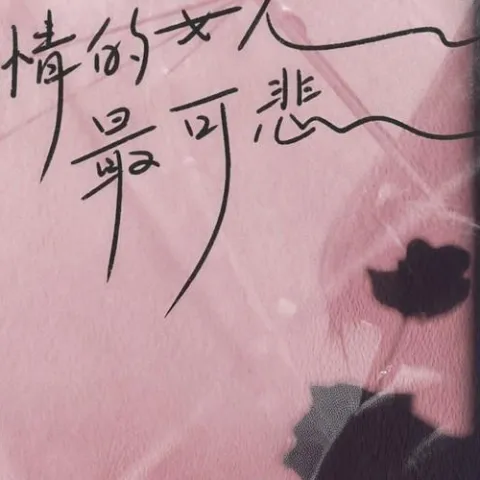 情的女人
最可悲